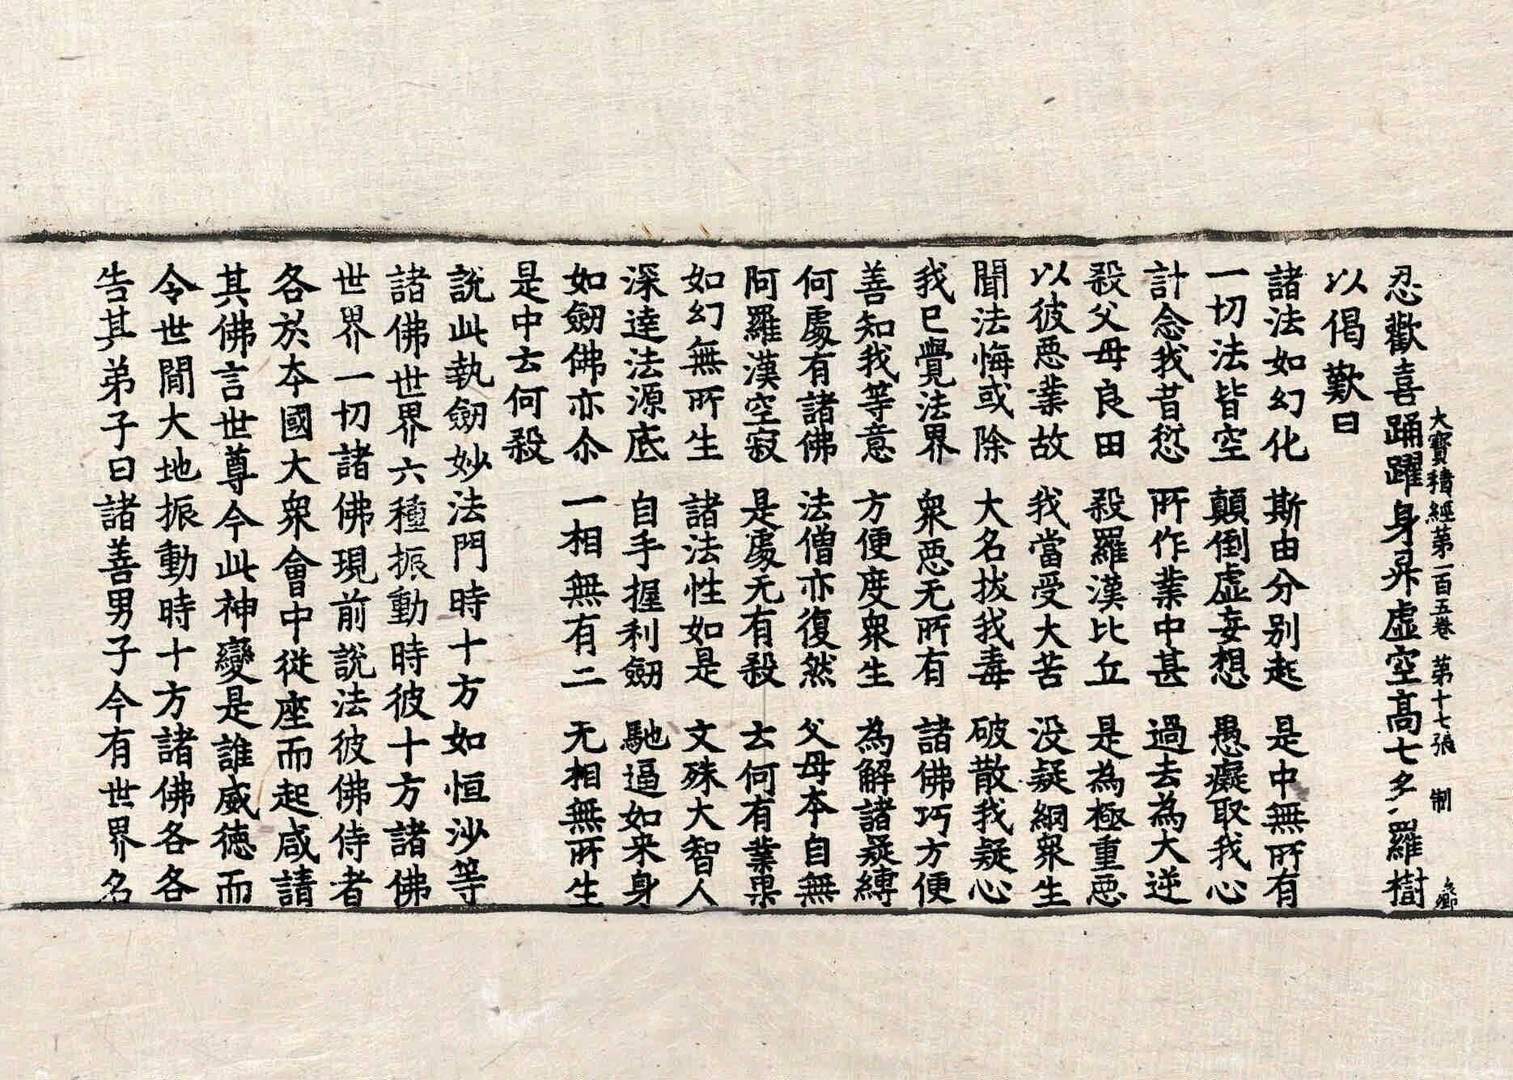 大寶積經第一百五卷 第十七張 制
忍歡喜踊躍身昇虛空高七多羅樹
以偈歎曰
諸法如幻化 斯由分別起 是中無所有
一切法皆空 顛倒虛妄想 愚癡取我心
計念我昔愆 所作業中甚 過去為大逆
殺父母良田 殺羅漢比丘 是為極重惡
以彼惡業故 我當受大苦 没疑網衆生
聞法悔或除 大名拔我毒 破散我疑心
我已覺法界 衆惡无所有 諸佛巧方便
善知我等意 方便度衆生 為解諸疑縛
何處有諸佛 法僧亦復然 父母本自無
阿羅漢空寂 是處无有殺 云何有業果
如幻無所生 諸法性如是 文殊大智人
深達法源底 自手握利劒 馳逼如来身
如劒佛亦尒 一相無有二 无相無所生
是中云何殺
說此執劒妙法門時十方如恒沙等
諸佛世界六種振動時彼十方諸佛
世界一切諸佛現前說法彼佛侍者
各於本國大衆會中從座而起咸請
其佛言世尊今此神變是誰威德而
令世間大地振動時十方諸佛各各
告其弟子曰諸善男子今有世界名